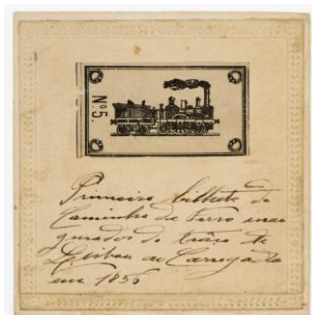 Nº 5.
Primeiro bilhete do
Caminho de ferro inau
gurados do troço de
Lisboa ao Carregado
em 1856